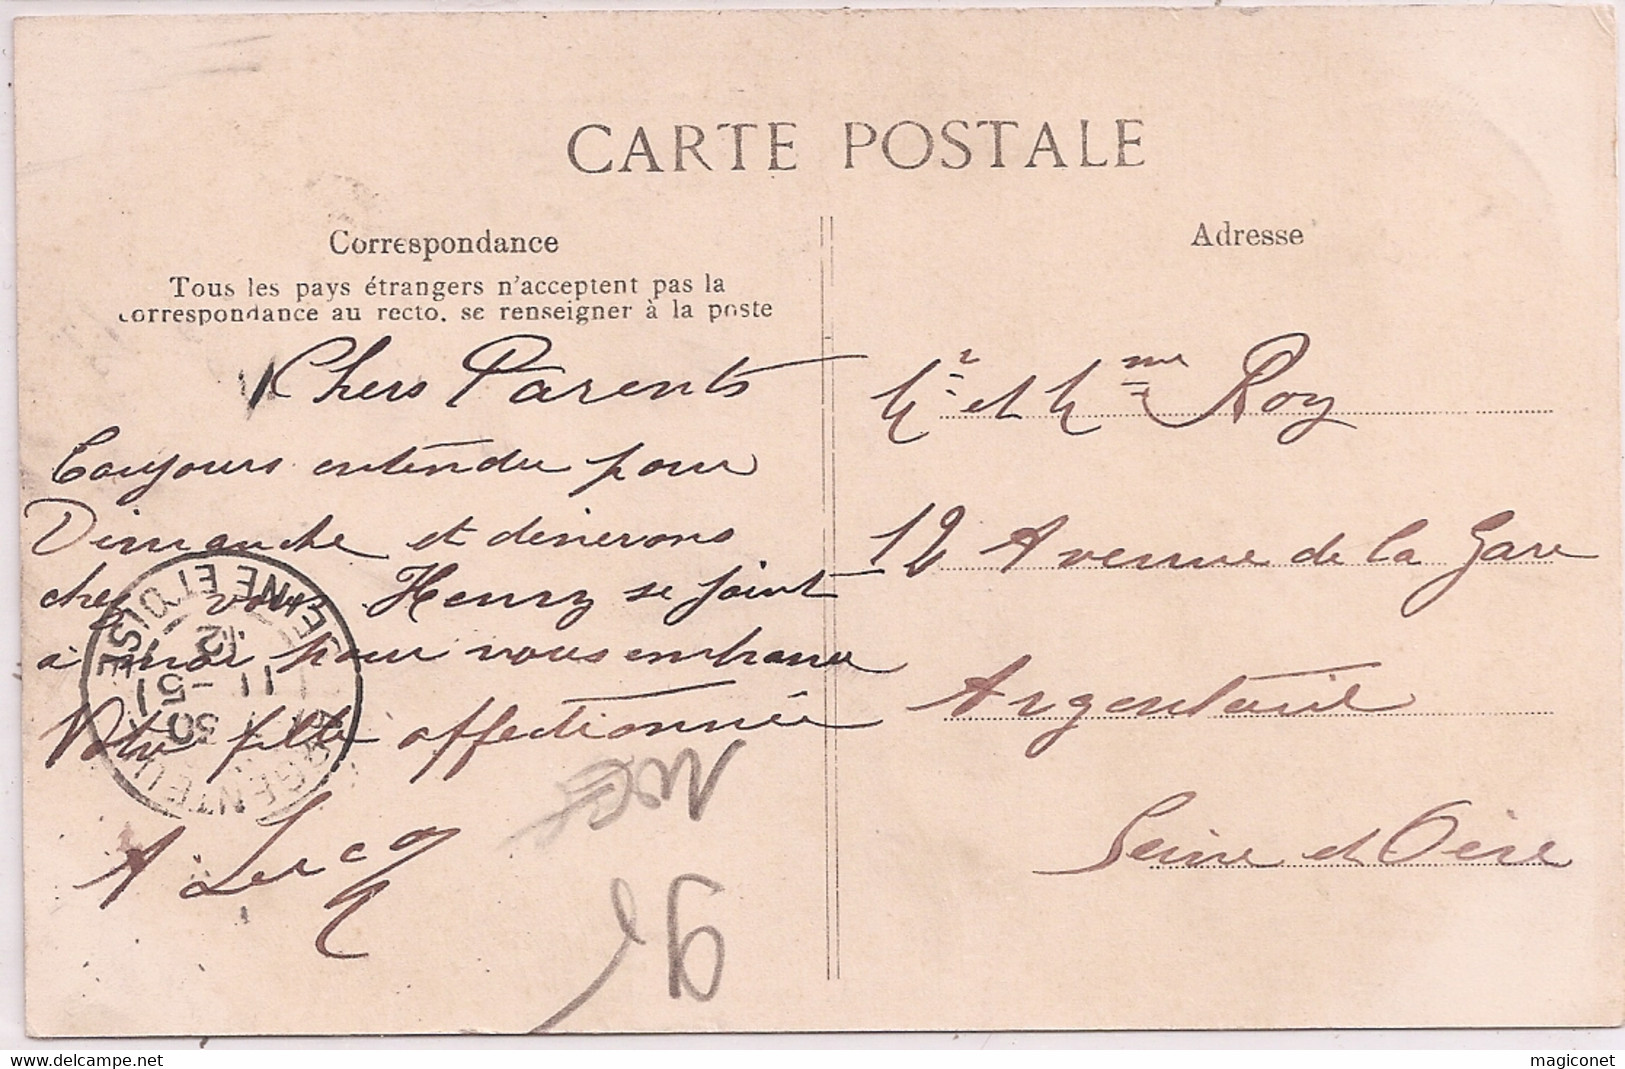 CARTE POSTALE
Correspondance
Tous les pays étrangers n'acceptent pas la
correspondance au recto, se renseigner à la poste
Chers Parents
Toujours entendu pour
Dimanche et dinerons
chez vous Henry se joint
à moi pour vous embrasser
Votre fille affectionnée
A Lecq
Adresse
Mr et Mme Roy
12 Avenue de la Gare
Argenteuil
Seine et Oise
ARGENTEUIL
SEINE ET OISE
95
delcampe.net
magiconet